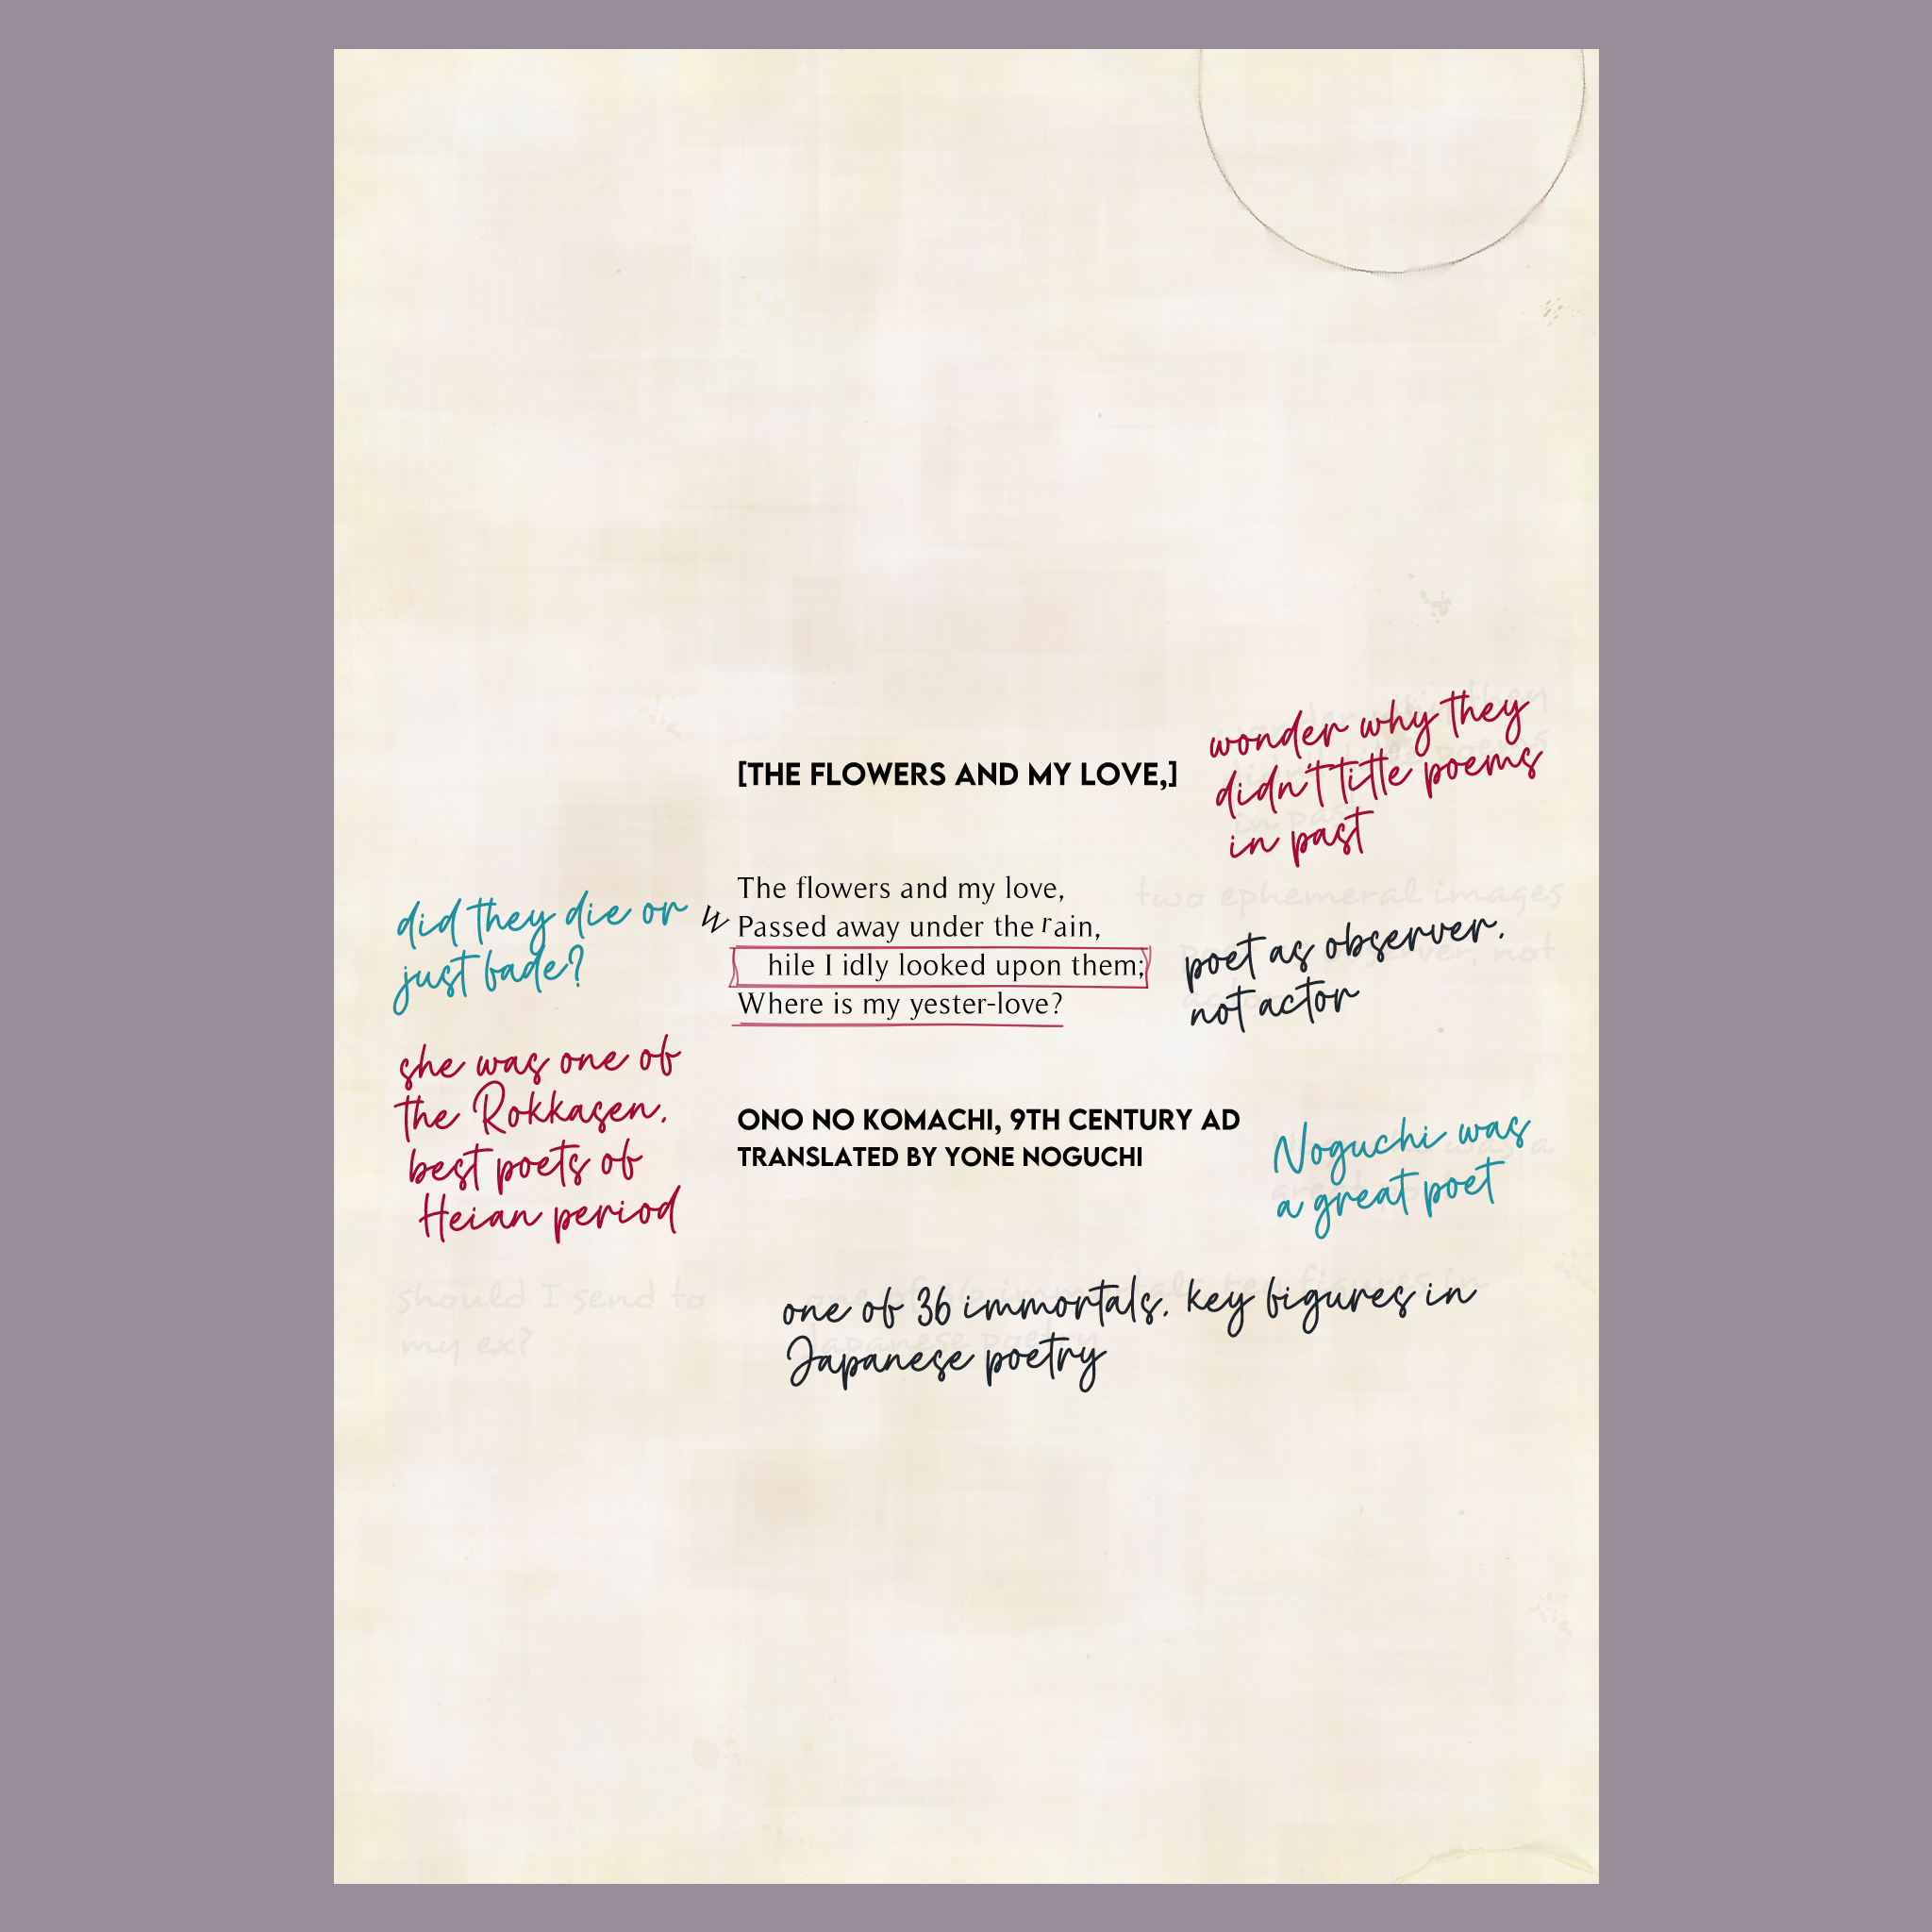 [THE FLOWERS AND MY LOVE,]
wonder why they
didn't title poems
in past
The flowers and my love,
Passed away under the rain,
While I idly looked upon them;
Where is my yester-love?
did they die or
just fade?
two ephemeral images
poet as observer,
not actor
she was one of
the Rokkasen,
best poets of
Heian period
ONO NO KOMACHI, 9TH CENTURY AD
TRANSLATED BY YONE NOGUCHI
Noguchi was
a great poet
should I send to
my ex?
one of 36 immortals, key figures in
Japanese poetry